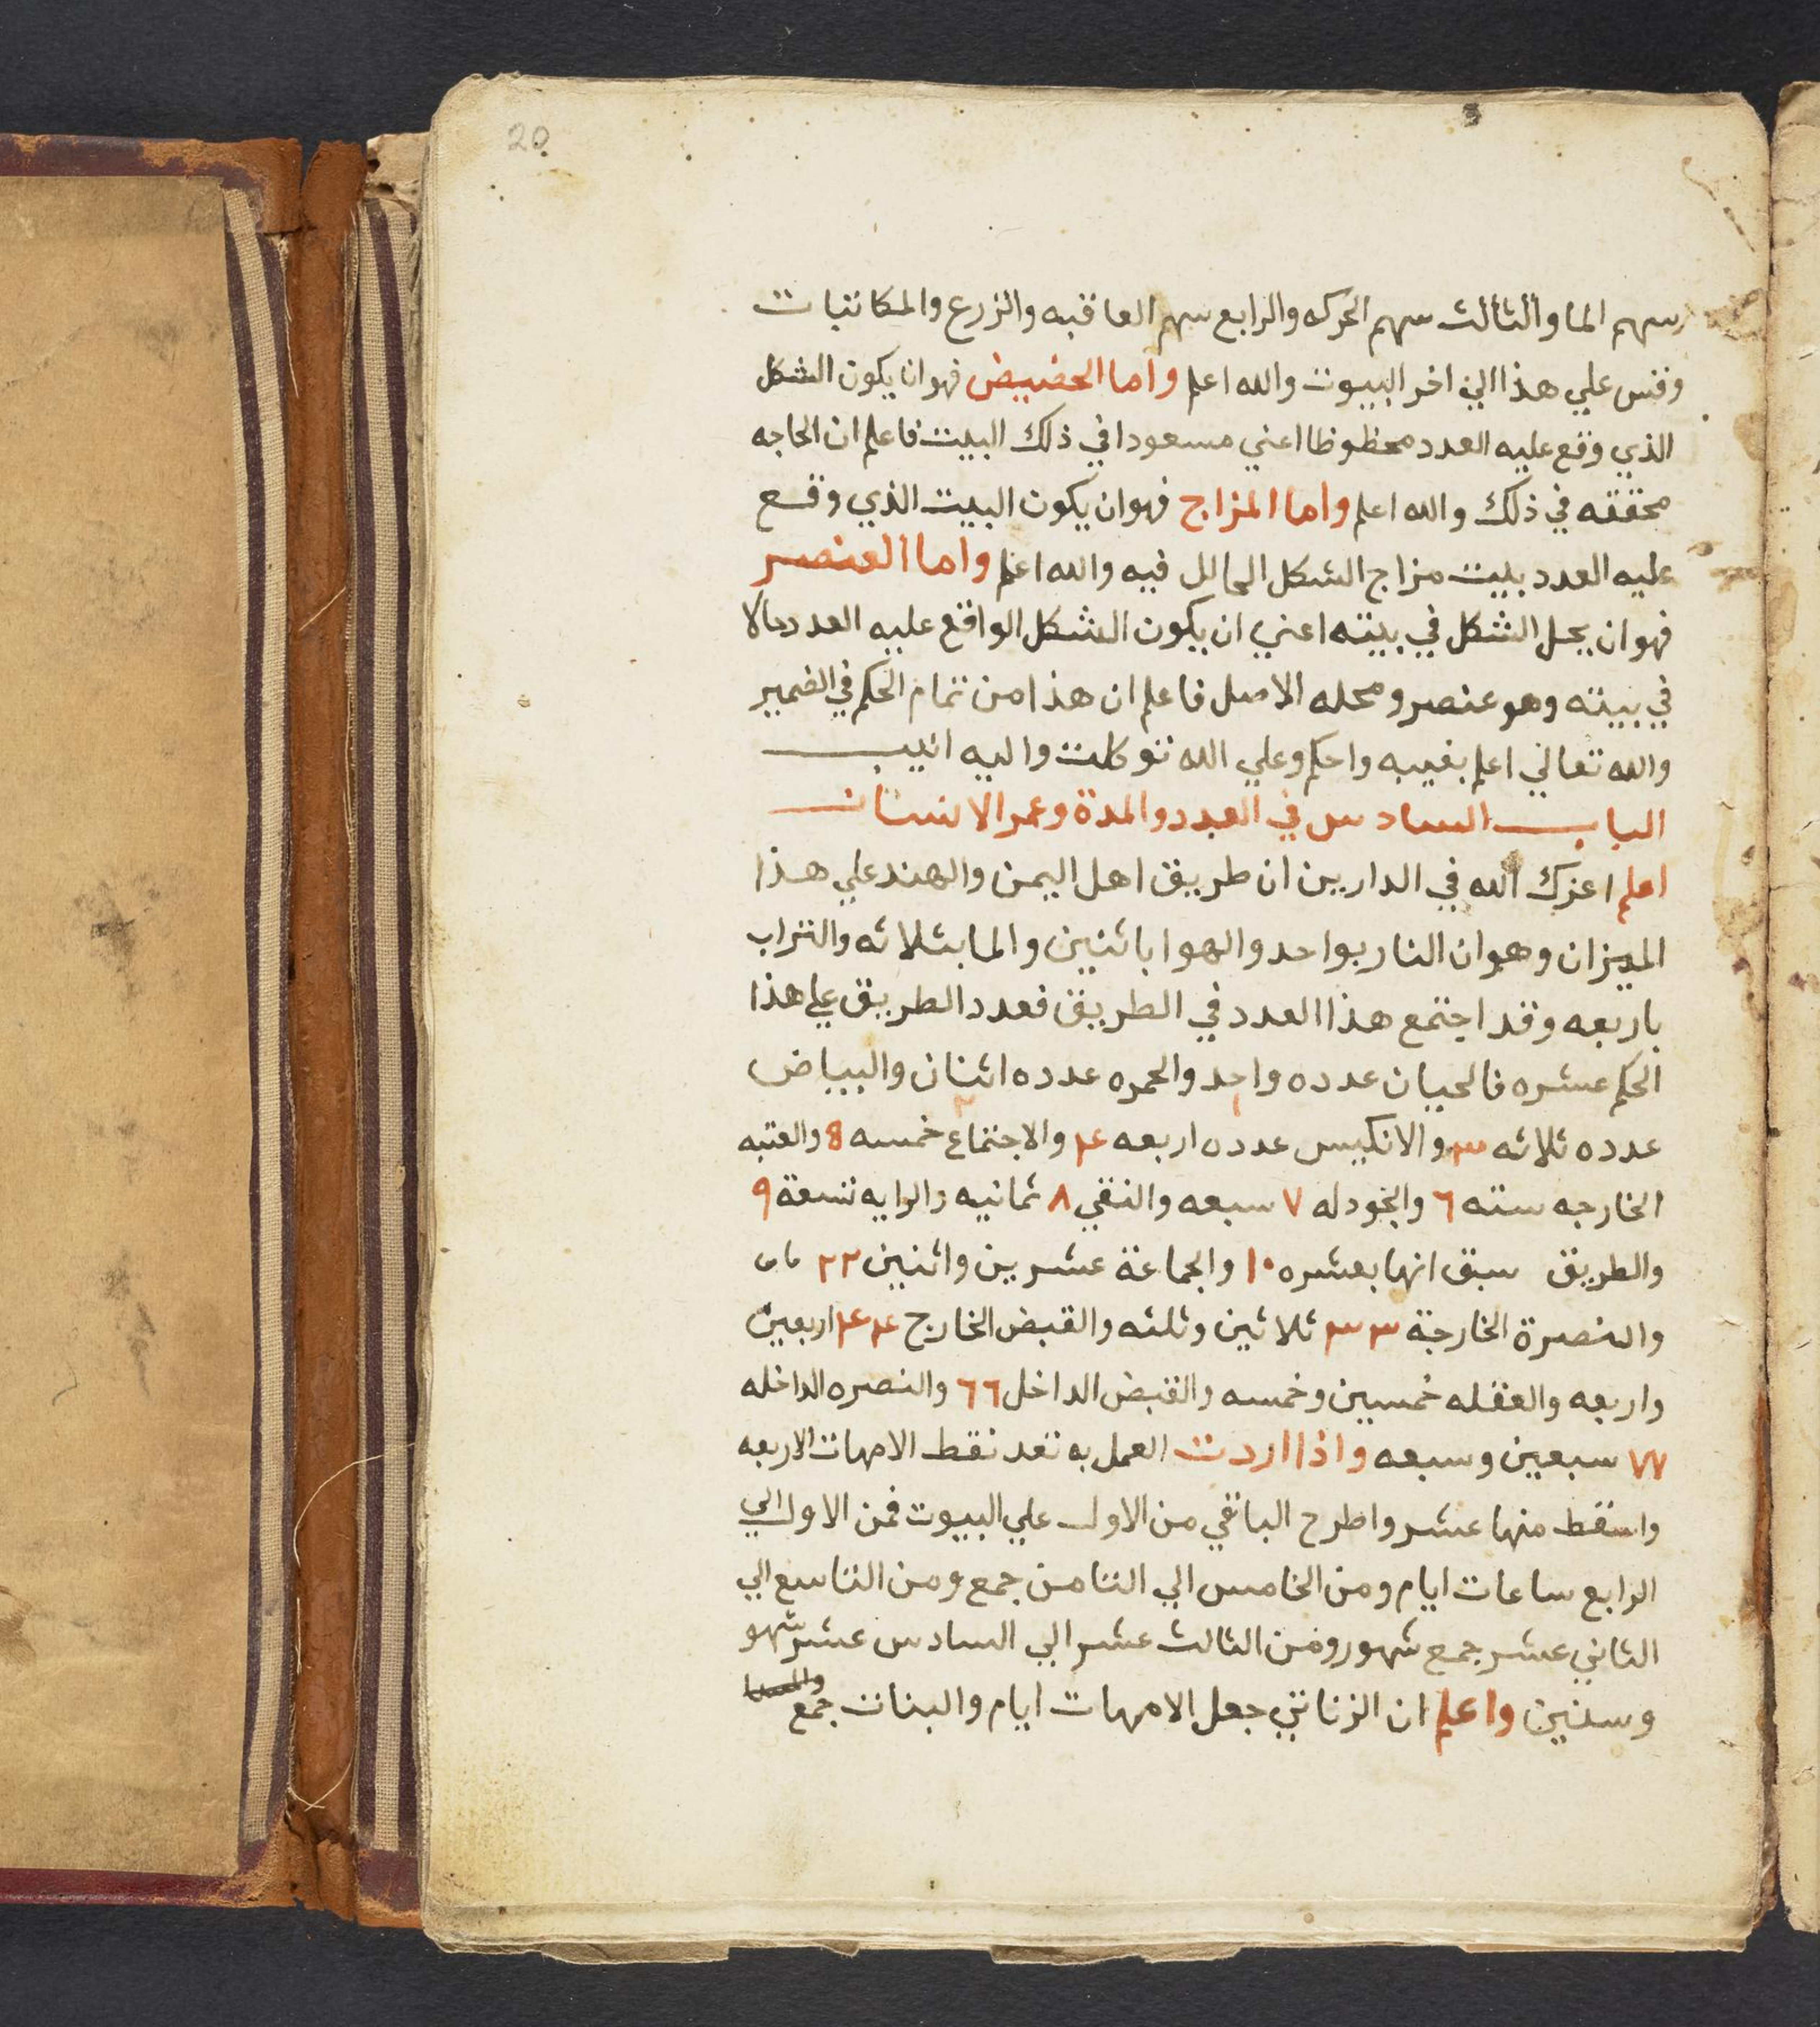 20
سهم الما والثالث سهم الحركه والرابع سهم العاقبه والزرع والمكاتبات
وقس علي هذا الي اخر البيوت والله اعلم واما الحضيض فهو ان يكون الشكل
الذي وقع عليه العدد محظوظا اعني مسعودا في ذلك البيت فاعلم ان الحاجه
محققه في ذلك والله اعلم واما المزاج فهو ان يكون البيت الذي وقع
عليه العدد بيت مزاج الشكل الحالل فيه والله اعلم واما العنصر
فهو ان يحل الشكل في بيته اعني ان يكون الشكل الواقع عليه العدد حالا
في بيته وهو عنصر ومحله الاصل فاعلم ان هذا من تمام الحكم في الضمير
والله تعالي اعلم بغيبه واحكم وعلي الله توكلت واليه انيب
الباب السادس في العدد والمدة وعمر الانسان
اعلم اعزك الله في الدارين ان طريق اهل اليمن والهند علي هذا
الميزان وهو ان النار بواحد والهوا باثنين والما بثلاثه والتراب
باربعه وقد اجتمع هذا العدد في الطريق فعدد الطريق علي هذا
الحكم عشره فالحيان عدده واحد ١ والحمره عدده اثنان ٢ والبياض
عدده ثلاثه ٣ والانكيس عدده اربعه ٤ والاجتماع خمسه 8 والعتبه
الخارجه سته ٦ والجودله ٧ سبعه والنقي ٨ ثمانيه والرايه تسعة ٩
والطريق سبق انها بعشره ١٠ والجماعة عشرين واثنين ٢٢
والنصرة الخارجة ٣٣ ثلاثين وثلثه والقبض الخارج ٤٤ اربعين
واربعه والعقله خمسين وخمسه والقبض الداخل ٦٦ والنصره الداخله
٧٧ سبعين وسبعه واذا اردت العمل به تعد نقط الامهات الاربعه
واسقط منها عشر واطرح الباقي من الاول علي البيوت فمن الاول الي
الرابع ساعات ايام ومن الخامس الي الثامن جمع ومن التاسع الي
الثاني عشر جمع شهور ومن الثالث عشر الي السادس عشر شهو
وسنين واعلم ان الزناتي جعل الامهات ايام والبنات جمع